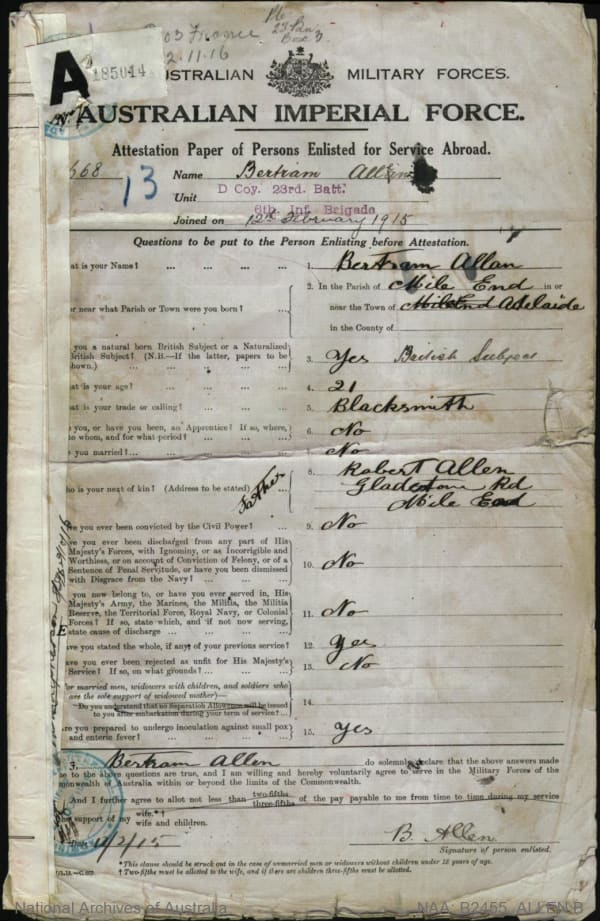 France
23
2.11.16
A 185044
AUSTRALIAN MILITARY FORCES.
AUSTRALIAN IMPERIAL FORCE.
Attestation Paper of Persons Enlisted for Service Abroad.
668 Name Bertram Allen
13 Unit D Coy. 23rd. Batt.
6th. Inf. Brigade
Joined on 12th February 1915
Questions to be put to the Person Enlisting before Attestation.
at is your Name? ... ... ... ... 1. Bertram Allan
2. In the Parish of Mile End in or
or near what Parish or Town were you born? ... near the Town of Mile End Adelaide
in the County of
you a natural born British Subject or a Naturalized
British Subject? (N.B.—If the latter, papers to be
hown.) ... ... ... ... 3. Yes British Subject
at is your age? ... ... ... ... 4. 21
at is your trade or calling? ... ... ... 5. Blacksmith
you, or have you been, an Apprentice? If so, where,
to whom, and for what period? ... ... ... 6. No
you married?... ... ... ... 7. No
8. Robert Allen
ho is your next of kin? (Address to be stated) Father Gladstone Rd
Mile End
ve you ever been convicted by the Civil Power? ... 9. No
ve you ever been discharged from any part of His
Majesty's Forces, with Ignominy, or as Incorrigible and
Worthless, or on account of Conviction of Felony, or of a
Sentence of Penal Servitude, or have you been dismissed
with Disgrace from the Navy? ... ... ... 10. No
you now belong to, or have you ever served in, His
Majesty's Army, the Marines, the Militia, the Militia
Reserve, the Territorial Force, Royal Navy, or Colonial
Forces? If so, state which, and if not now serving,
state cause of discharge ... ... ... ... 11. No
ave you stated the whole, if any, of your previous service? 12. Yes
ave you ever been rejected as unfit for His Majesty's
Service? If so, on what grounds? ... ... ... 13. No
For married men, widowers with children, and soldiers who
are the sole support of widowed mother)—
Do you understand that no Separation Allowance will be issued
to you after embarkation during your term of service?... 14.
re you prepared to undergo inoculation against small pox
and enteric fever? ... ... ... ... 15. Yes
3. Bertram Allen do solemnly declare that the above answers made
me to the above questions are true, and I am willing and hereby voluntarily agree to serve in the Military Forces of the
monwealth of Australia within or beyond the limits of the Commonwealth.
And I further agree to allot not less than two-fifths three-fifths of the pay payable to me from time to time during my service
the support of my wife.*†
wife and children.
Date 12/2/15 B. Allen
Signature of person enlisted.
* This clause should be struck out in the case of unmarried men or widowers without children under 18 years of age.
† Two-fifths must be allotted to the wife, and if there are children three-fifths must be allotted.
National Archives of Australia NAA: B2455, ALLEN B